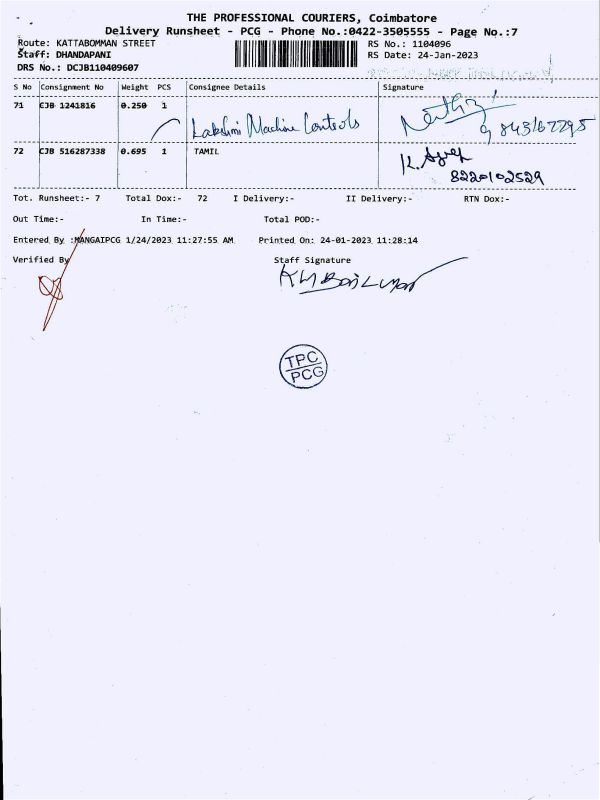 THE PROFESSIONAL COURIERS, Coimbatore
Delivery Runsheet - PCG - Phone No.:0422-3505555 - Page No.:7
Route: KATTABOMMAN STREET RS No.: 1104096
Staff: DHANDAPANI RS Date: 24-Jan-2023
DRS No.: DCJB110409607
S No Consignment No Weight PCS Consignee Details Signature
71 CJB 1241816 0.250 1
Lakshmi Machine Controls
72 CJB 516287338 0.695 1 TAMIL
8220102529
Tot. Runsheet:- 7 Total Dox:- 72 I Delivery:- II Delivery:- RTN Dox:-
Out Time:- In Time:- Total POD:-
Entered By :MANGAIPCG 1/24/2023 11:27:55 AM Printed On: 24-01-2023 11:28:14
Verified By Staff Signature
TPC
PCG